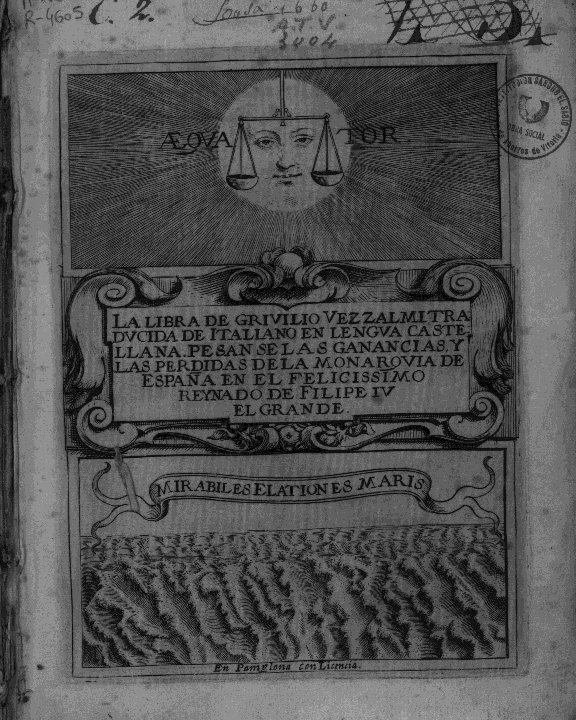 R-4605
C. 2.
ATV
3404
ÆQVA TOR
OBRA SOCIAL
LA LIBRA DE GRIVILIO VEZZALMI TRA
DVCIDA DE ITALIANO EN LENGVA CASTE,
LLANA. PESAN SE LAS GANANCIAS, Y
LAS PERDIDAS DE LA MONARQVIA DE
ESPAÑA EN EL FELICISSIMO
REYNADO DE FILIPE IV
EL GRANDE.
MIRABILES ELATIONES MARIS
En Pamplona con Licencia.